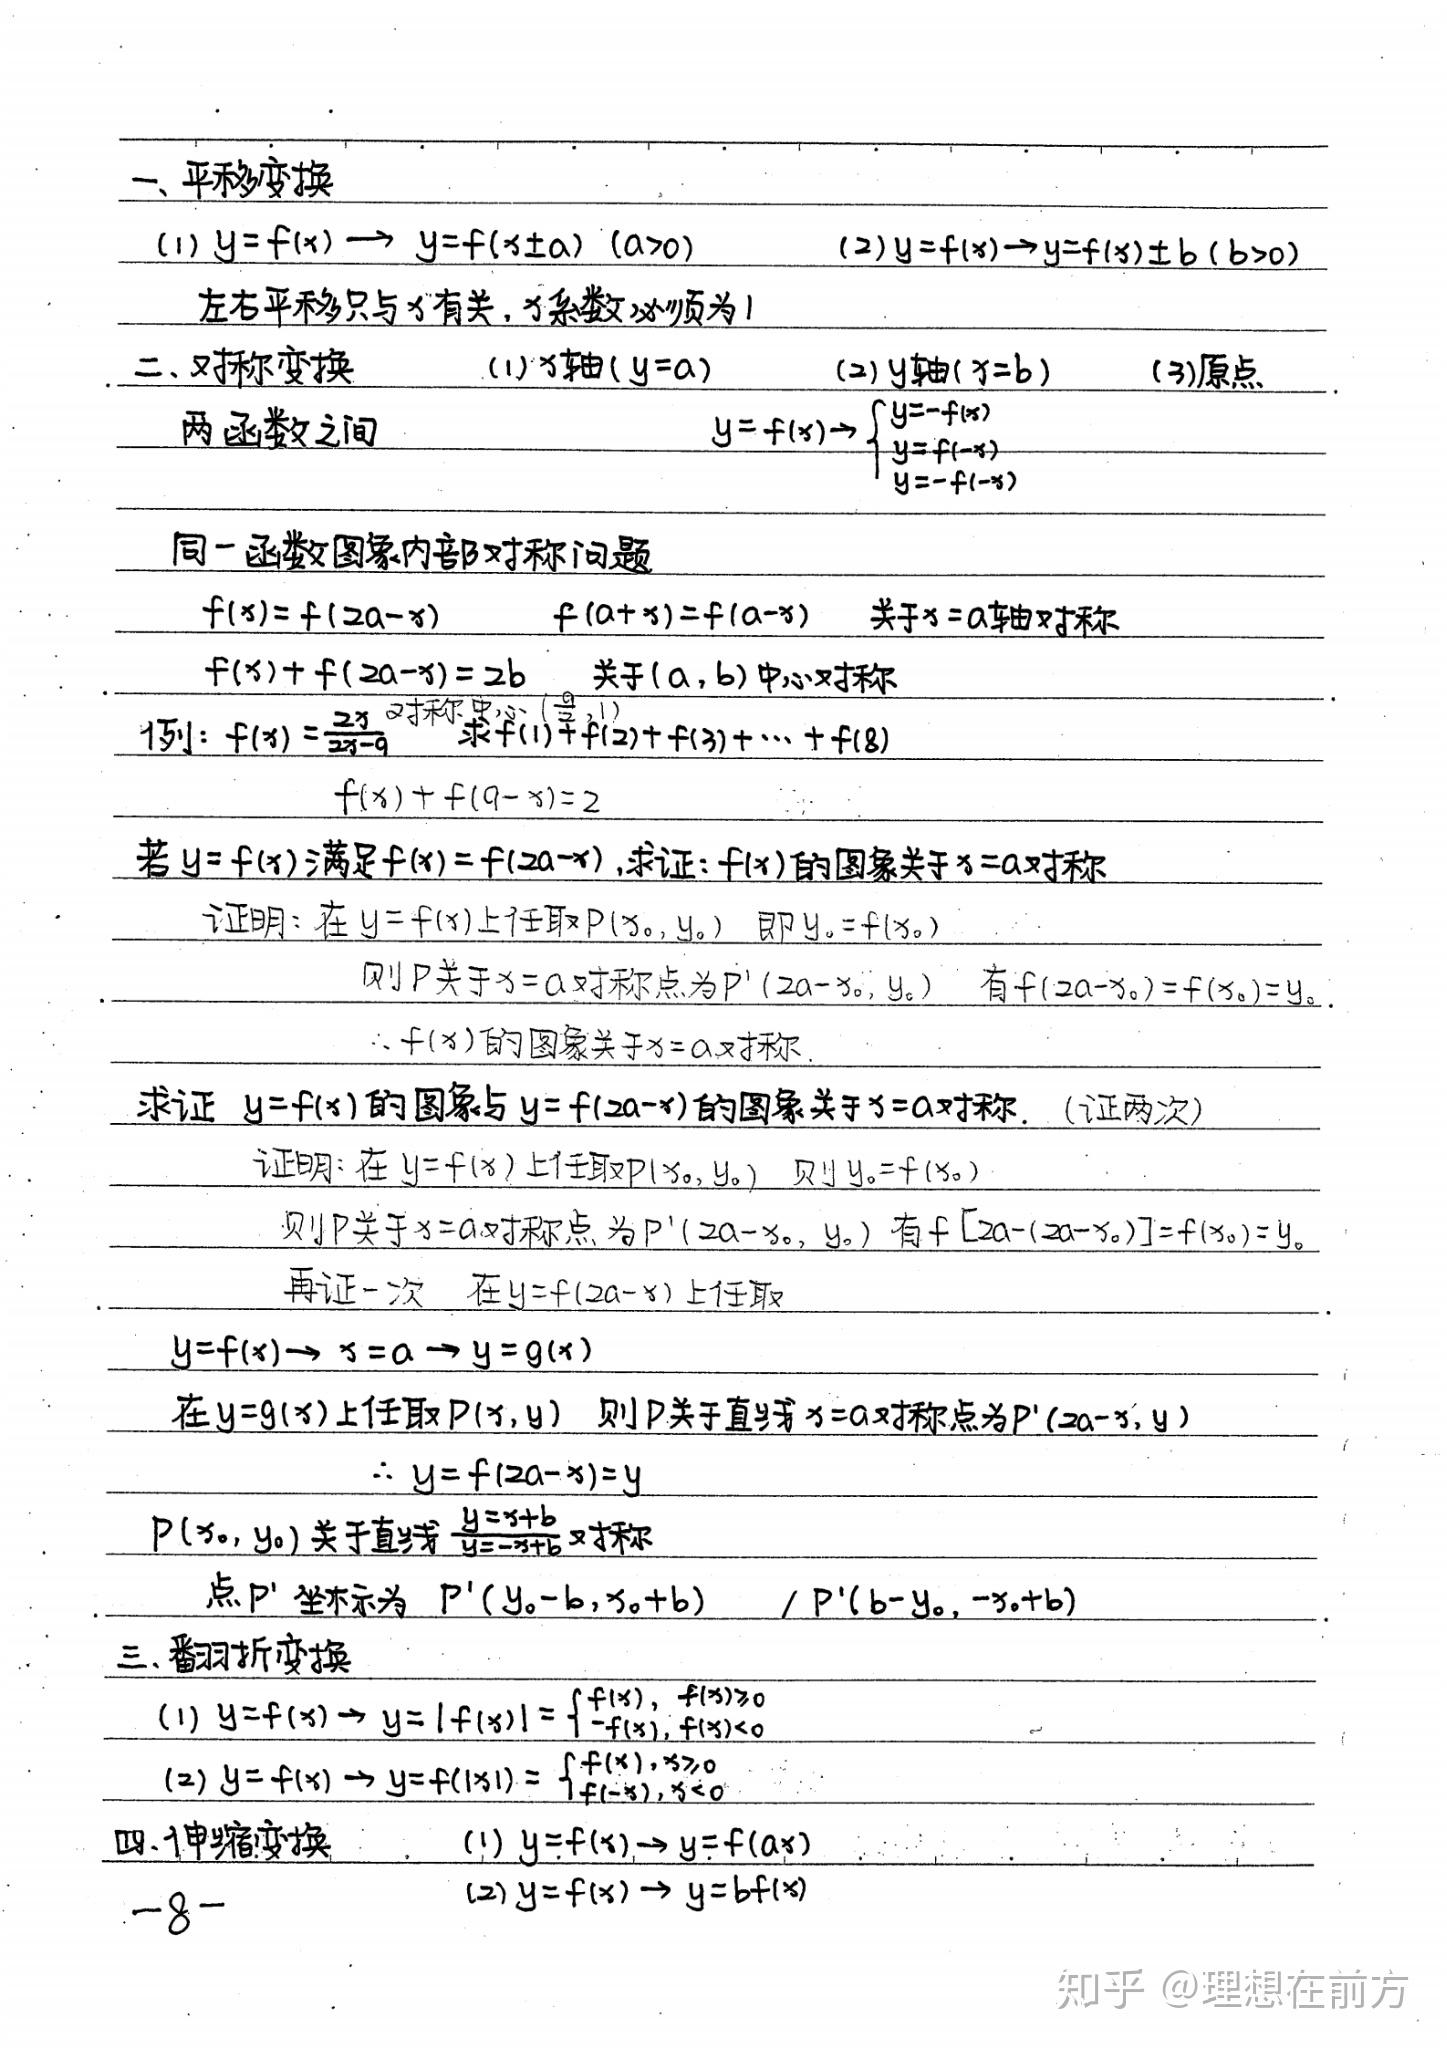 一、平移变换
(1) y=f(x)→ y=f(x±a) (a>0) (2) y=f(x)→y=f(x)±b (b>0)
左右平移只与x有关，x系数必须为1
二、对称变换 (1) x轴(y=a) (2) y轴(x=b) (3)原点
两函数之间 y=f(x)→{y=-f(x)
y=f(-x)
y=-f(-x)
同一函数图象内部对称问题
f(x)=f(2a-x) f(a+x)=f(a-x) 关于x=a轴对称
f(x)+f(2a-x)=2b 关于(a,b)中心对称
对称中心(9/2,1)
例: f(x)=2x/(2x-9) 求f(1)+f(2)+f(3)+…+f(8)
f(x)+f(9-x)=2
若y=f(x)满足f(x)=f(2a-x),求证:f(x)的图象关于x=a对称
证明:在y=f(x)上任取P(x₀,y₀) 即y₀=f(x₀)
则P关于x=a对称点为P'(2a-x₀,y₀) 有f(2a-x₀)=f(x₀)=y₀
∴f(x)的图象关于x=a对称.
求证 y=f(x)的图象与y=f(2a-x)的图象关于x=a对称. (证两次)
证明:在y=f(x)上任取P(x₀,y₀) 则y₀=f(x₀)
则P关于x=a对称点为P'(2a-x₀,y₀) 有f[2a-(2a-x₀)]=f(x₀)=y₀
再证一次 在y=f(2a-x)上任取
y=f(x)→ x=a → y=g(x)
在y=g(x)上任取P(x,y) 则P关于直线x=a对称点为P'(2a-x,y)
∴ y=f(2a-x)=y
P(x₀,y₀)关于直线 y=x+b / y=-x+b 对称
点P'坐标示为 P'(y₀-b,x₀+b) / P'(b-y₀,-x₀+b)
三、翻折变换
(1) y=f(x)→ y=|f(x)|={f(x), f(x)≥0
-f(x), f(x)<0
(2) y=f(x)→ y=f(|x|)={f(x), x≥0
f(-x), x<0
四、伸缩变换 (1) y=f(x)→ y=f(ax)
(2) y=f(x)→ y=bf(x)
-8-
知乎 @理想在前方